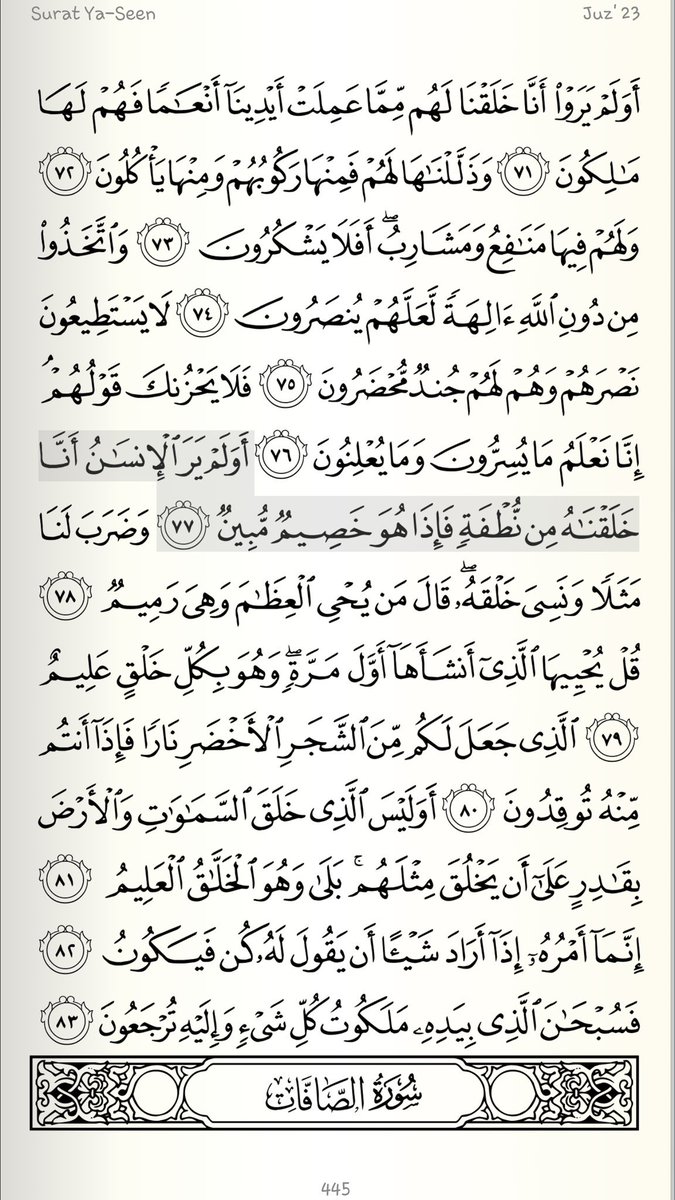 Surat Ya-Seen Juz' 23
أَوَلَمْ يَرَوْا۟ أَنَّا خَلَقْنَا لَهُم مِّمَّا عَمِلَتْ أَيْدِينَآ أَنْعَـٰمًا فَهُمْ لَهَا
مَـٰلِكُونَ ٧١ وَذَلَّلْنَـٰهَا لَهُمْ فَمِنْهَا رَكُوبُهُمْ وَمِنْهَا يَأْكُلُونَ ٧٢
وَلَهُمْ فِيهَا مَنَـٰفِعُ وَمَشَارِبُ ۖ أَفَلَا يَشْكُرُونَ ٧٣ وَٱتَّخَذُوا۟
مِن دُونِ ٱللَّهِ ءَالِهَةً لَّعَلَّهُمْ يُنصَرُونَ ٧٤ لَا يَسْتَطِيعُونَ
نَصْرَهُمْ وَهُمْ لَهُمْ جُندٌ مُّحْضَرُونَ ٧٥ فَلَا يَحْزُنكَ قَوْلُهُمْ ۘ
إِنَّا نَعْلَمُ مَا يُسِرُّونَ وَمَا يُعْلِنُونَ ٧٦ أَوَلَمْ يَرَ ٱلْإِنسَـٰنُ أَنَّا
خَلَقْنَـٰهُ مِن نُّطْفَةٍ فَإِذَا هُوَ خَصِيمٌ مُّبِينٌ ٧٧ وَضَرَبَ لَنَا
مَثَلًا وَنَسِىَ خَلْقَهُۥ ۖ قَالَ مَن يُحْىِ ٱلْعِظَـٰمَ وَهِىَ رَمِيمٌ ٧٨
قُلْ يُحْيِيهَا ٱلَّذِىٓ أَنشَأَهَآ أَوَّلَ مَرَّةٍ ۖ وَهُوَ بِكُلِّ خَلْقٍ عَلِيمٌ
٧٩ ٱلَّذِى جَعَلَ لَكُم مِّنَ ٱلشَّجَرِ ٱلْأَخْضَرِ نَارًا فَإِذَآ أَنتُم
مِّنْهُ تُوقِدُونَ ٨٠ أَوَلَيْسَ ٱلَّذِى خَلَقَ ٱلسَّمَـٰوَٰتِ وَٱلْأَرْضَ
بِقَـٰدِرٍ عَلَىٰٓ أَن يَخْلُقَ مِثْلَهُم ۚ بَلَىٰ وَهُوَ ٱلْخَلَّـٰقُ ٱلْعَلِيمُ ٨١
إِنَّمَآ أَمْرُهُۥٓ إِذَآ أَرَادَ شَيْـًٔا أَن يَقُولَ لَهُۥ كُن فَيَكُونُ ٨٢
فَسُبْحَـٰنَ ٱلَّذِى بِيَدِهِۦ مَلَكُوتُ كُلِّ شَىْءٍ وَإِلَيْهِ تُرْجَعُونَ ٨٣
سُورَةُ الصَّافَّاتِ
445